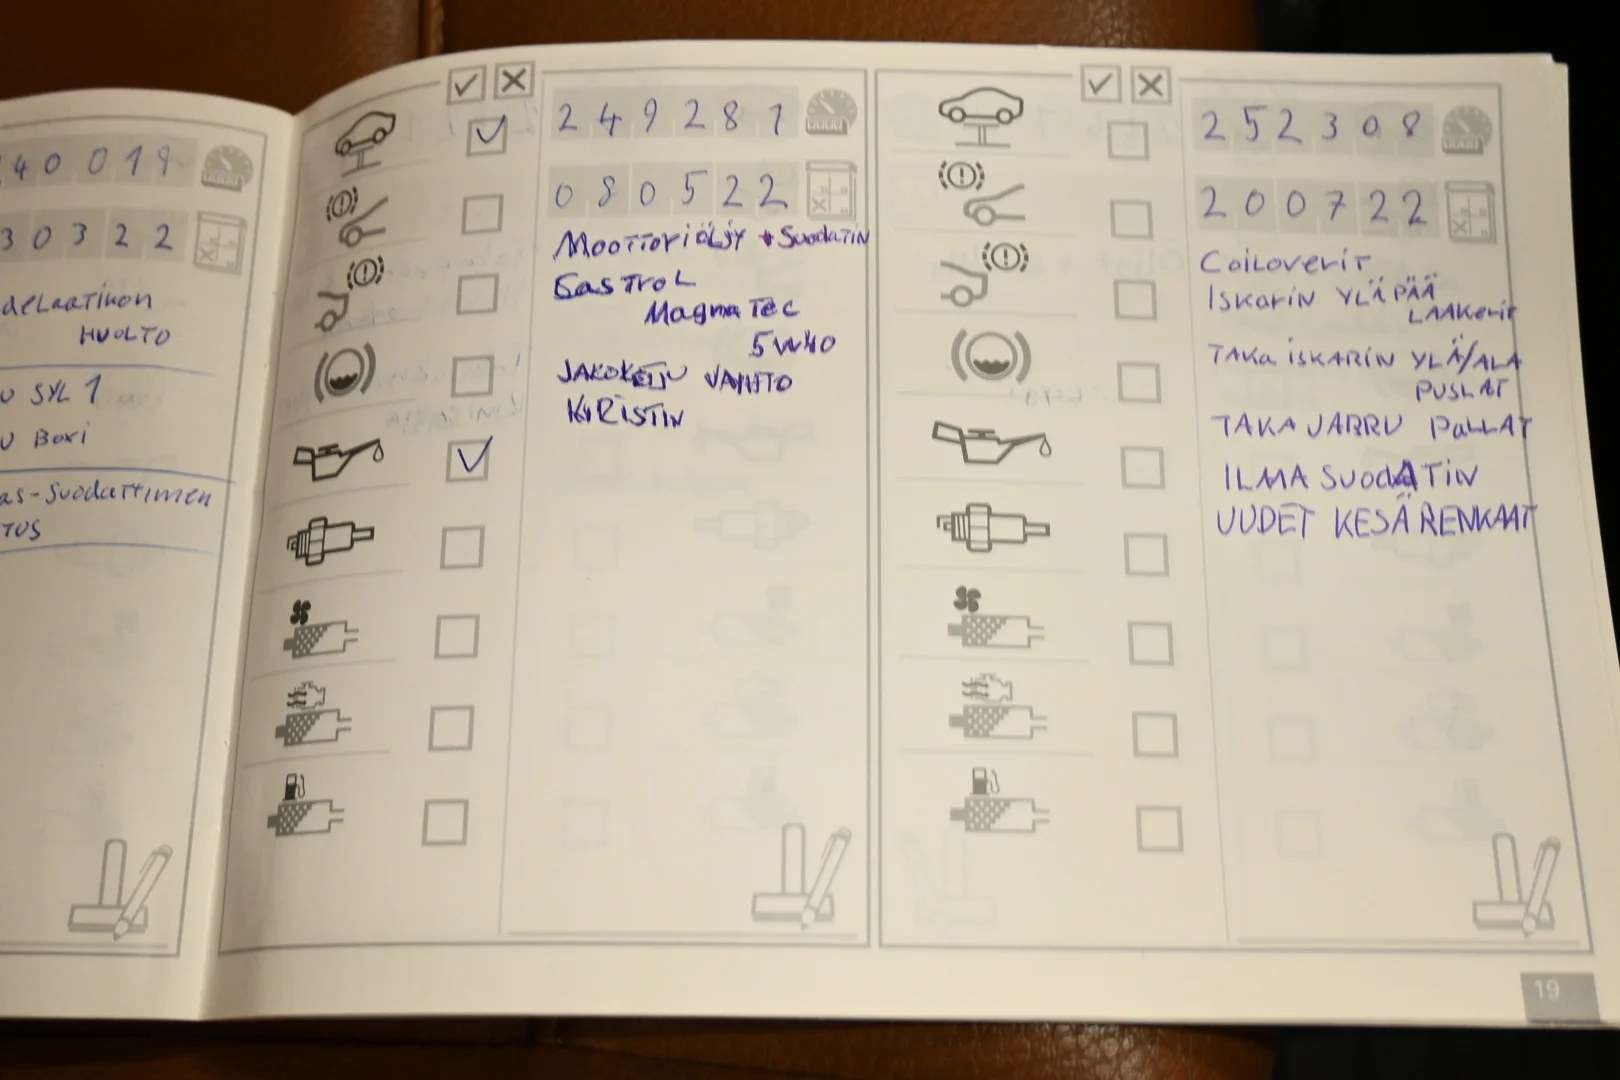 40019
30322
HUOLTO
SYL 1
Boxi
249281
080522
MOOTTORIÖLJY + SUODATIN
GasTROL
MagnaTec
5W40
JAKOKETJU VAIHTO
KIRISTIN
252308
200722
Coiloverit
ISKARIN YLÄPÄÄ
LAAKERIT
TAKA ISKARIN YLÄ/ALA
PUSLAT
TAKA JARRU PALLAT
ILMA SUODATIN
UUDET KESÄRENKAAT
19